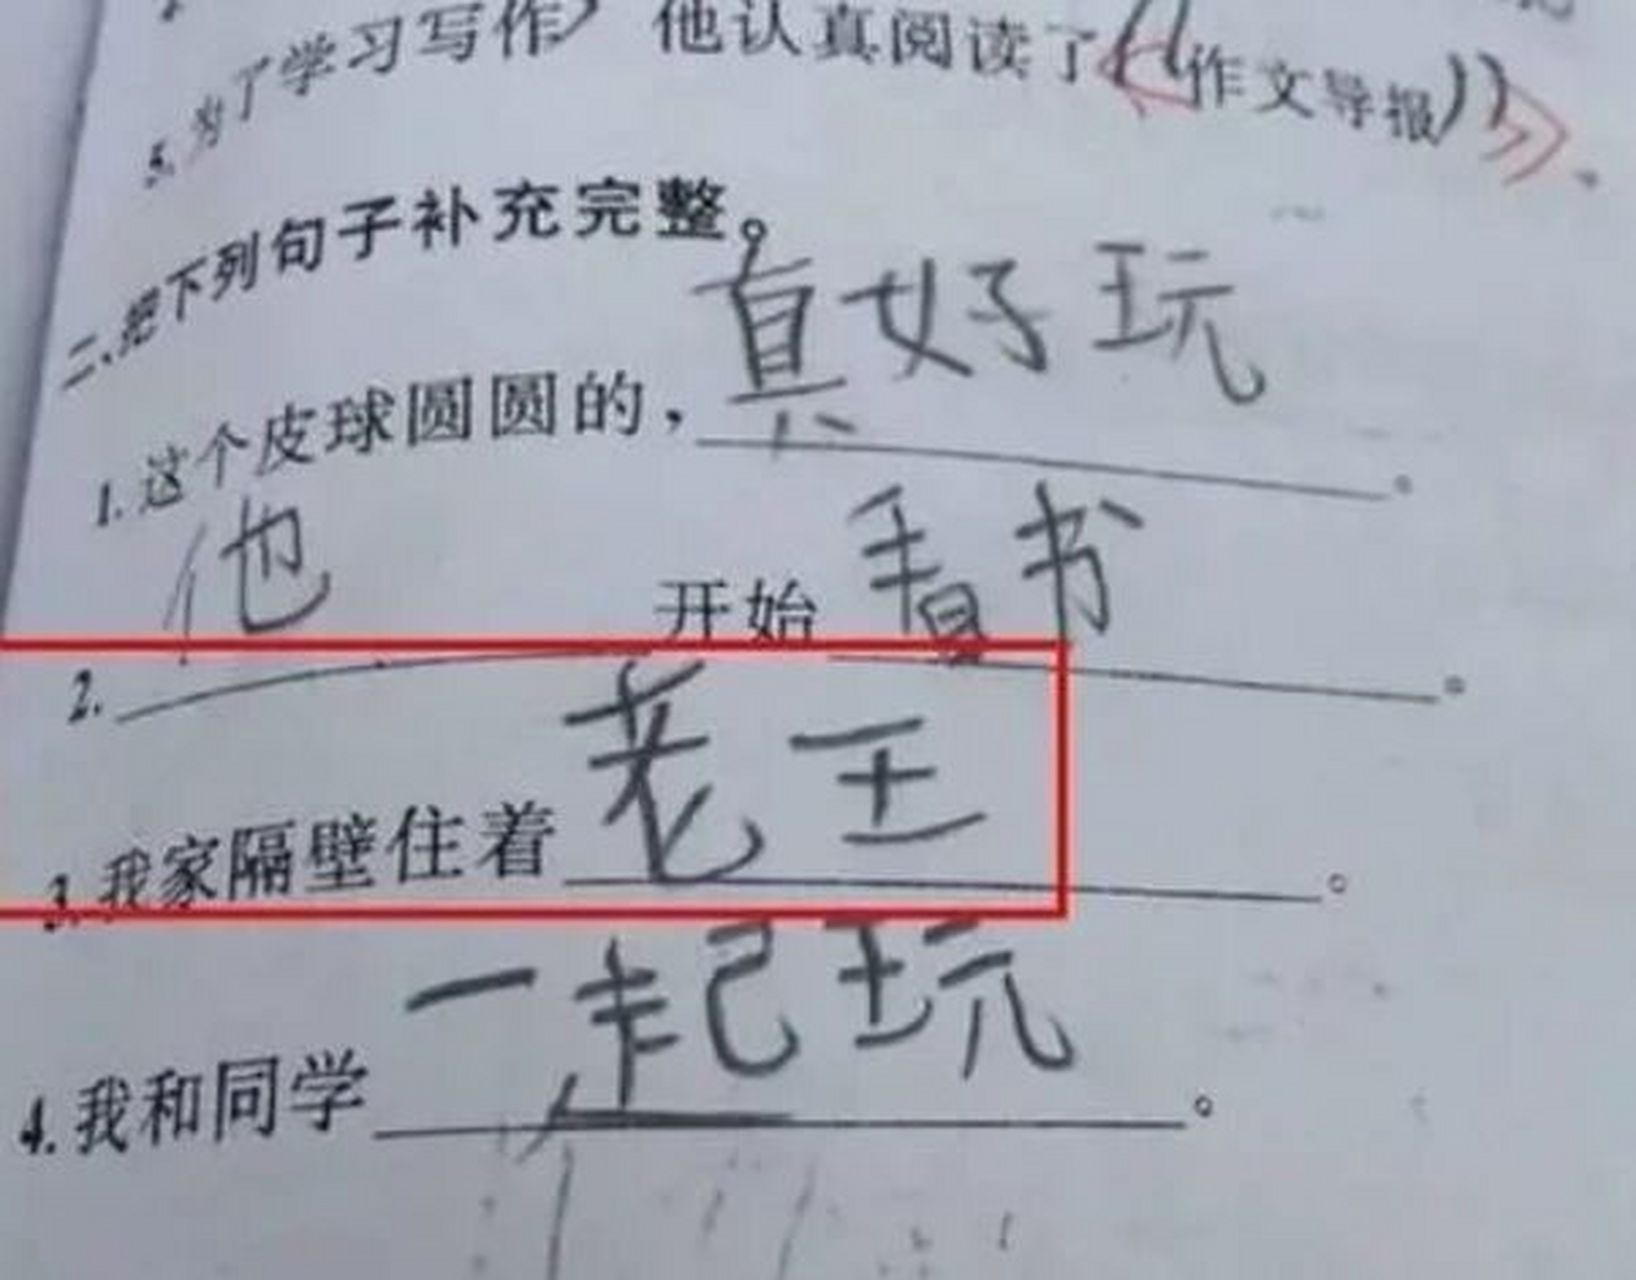 5.为了学习写作，他认真阅读了《《作文导报》》。
二、把下列句子补充完整。
1.这个皮球圆圆的，真好玩。
2.他开始看书。
3.我家隔壁住着老王。
4.我和同学一起玩。